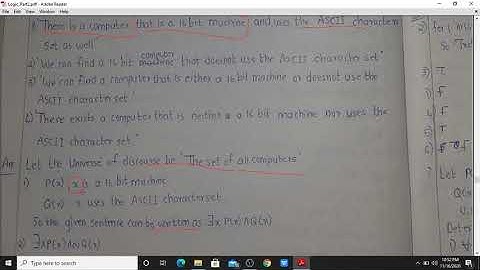 Logic_Part2.pdf - Adobe Reader
File Edit View Window Help
1) 'There is a computer that is a 16 bit machine and uses the ASCII character
set as well'
2) 'We can find a 16 bit computer machine that doesnot use the ASCII character set'
3) 'We can find a computer that is either a 16 bit machine or doesnot use the
ASCII character set'
4) 'There exists a computer that is neither a 16 bit machine nor uses the
ASCII character set.'
Ans Let the Universe of discourse be 'The set of all computers'
1) P(x) x is a 16 bit machine
Q(x) x uses the ASCII character set
So the given sentence can be written as ∃x P(x) ∧ Q(x)
2) ∃x P(x) ∧ ¬Q(x)
2) T
3) F
4) F
5) T
Type here to search
10:52 PM
11/16/2020